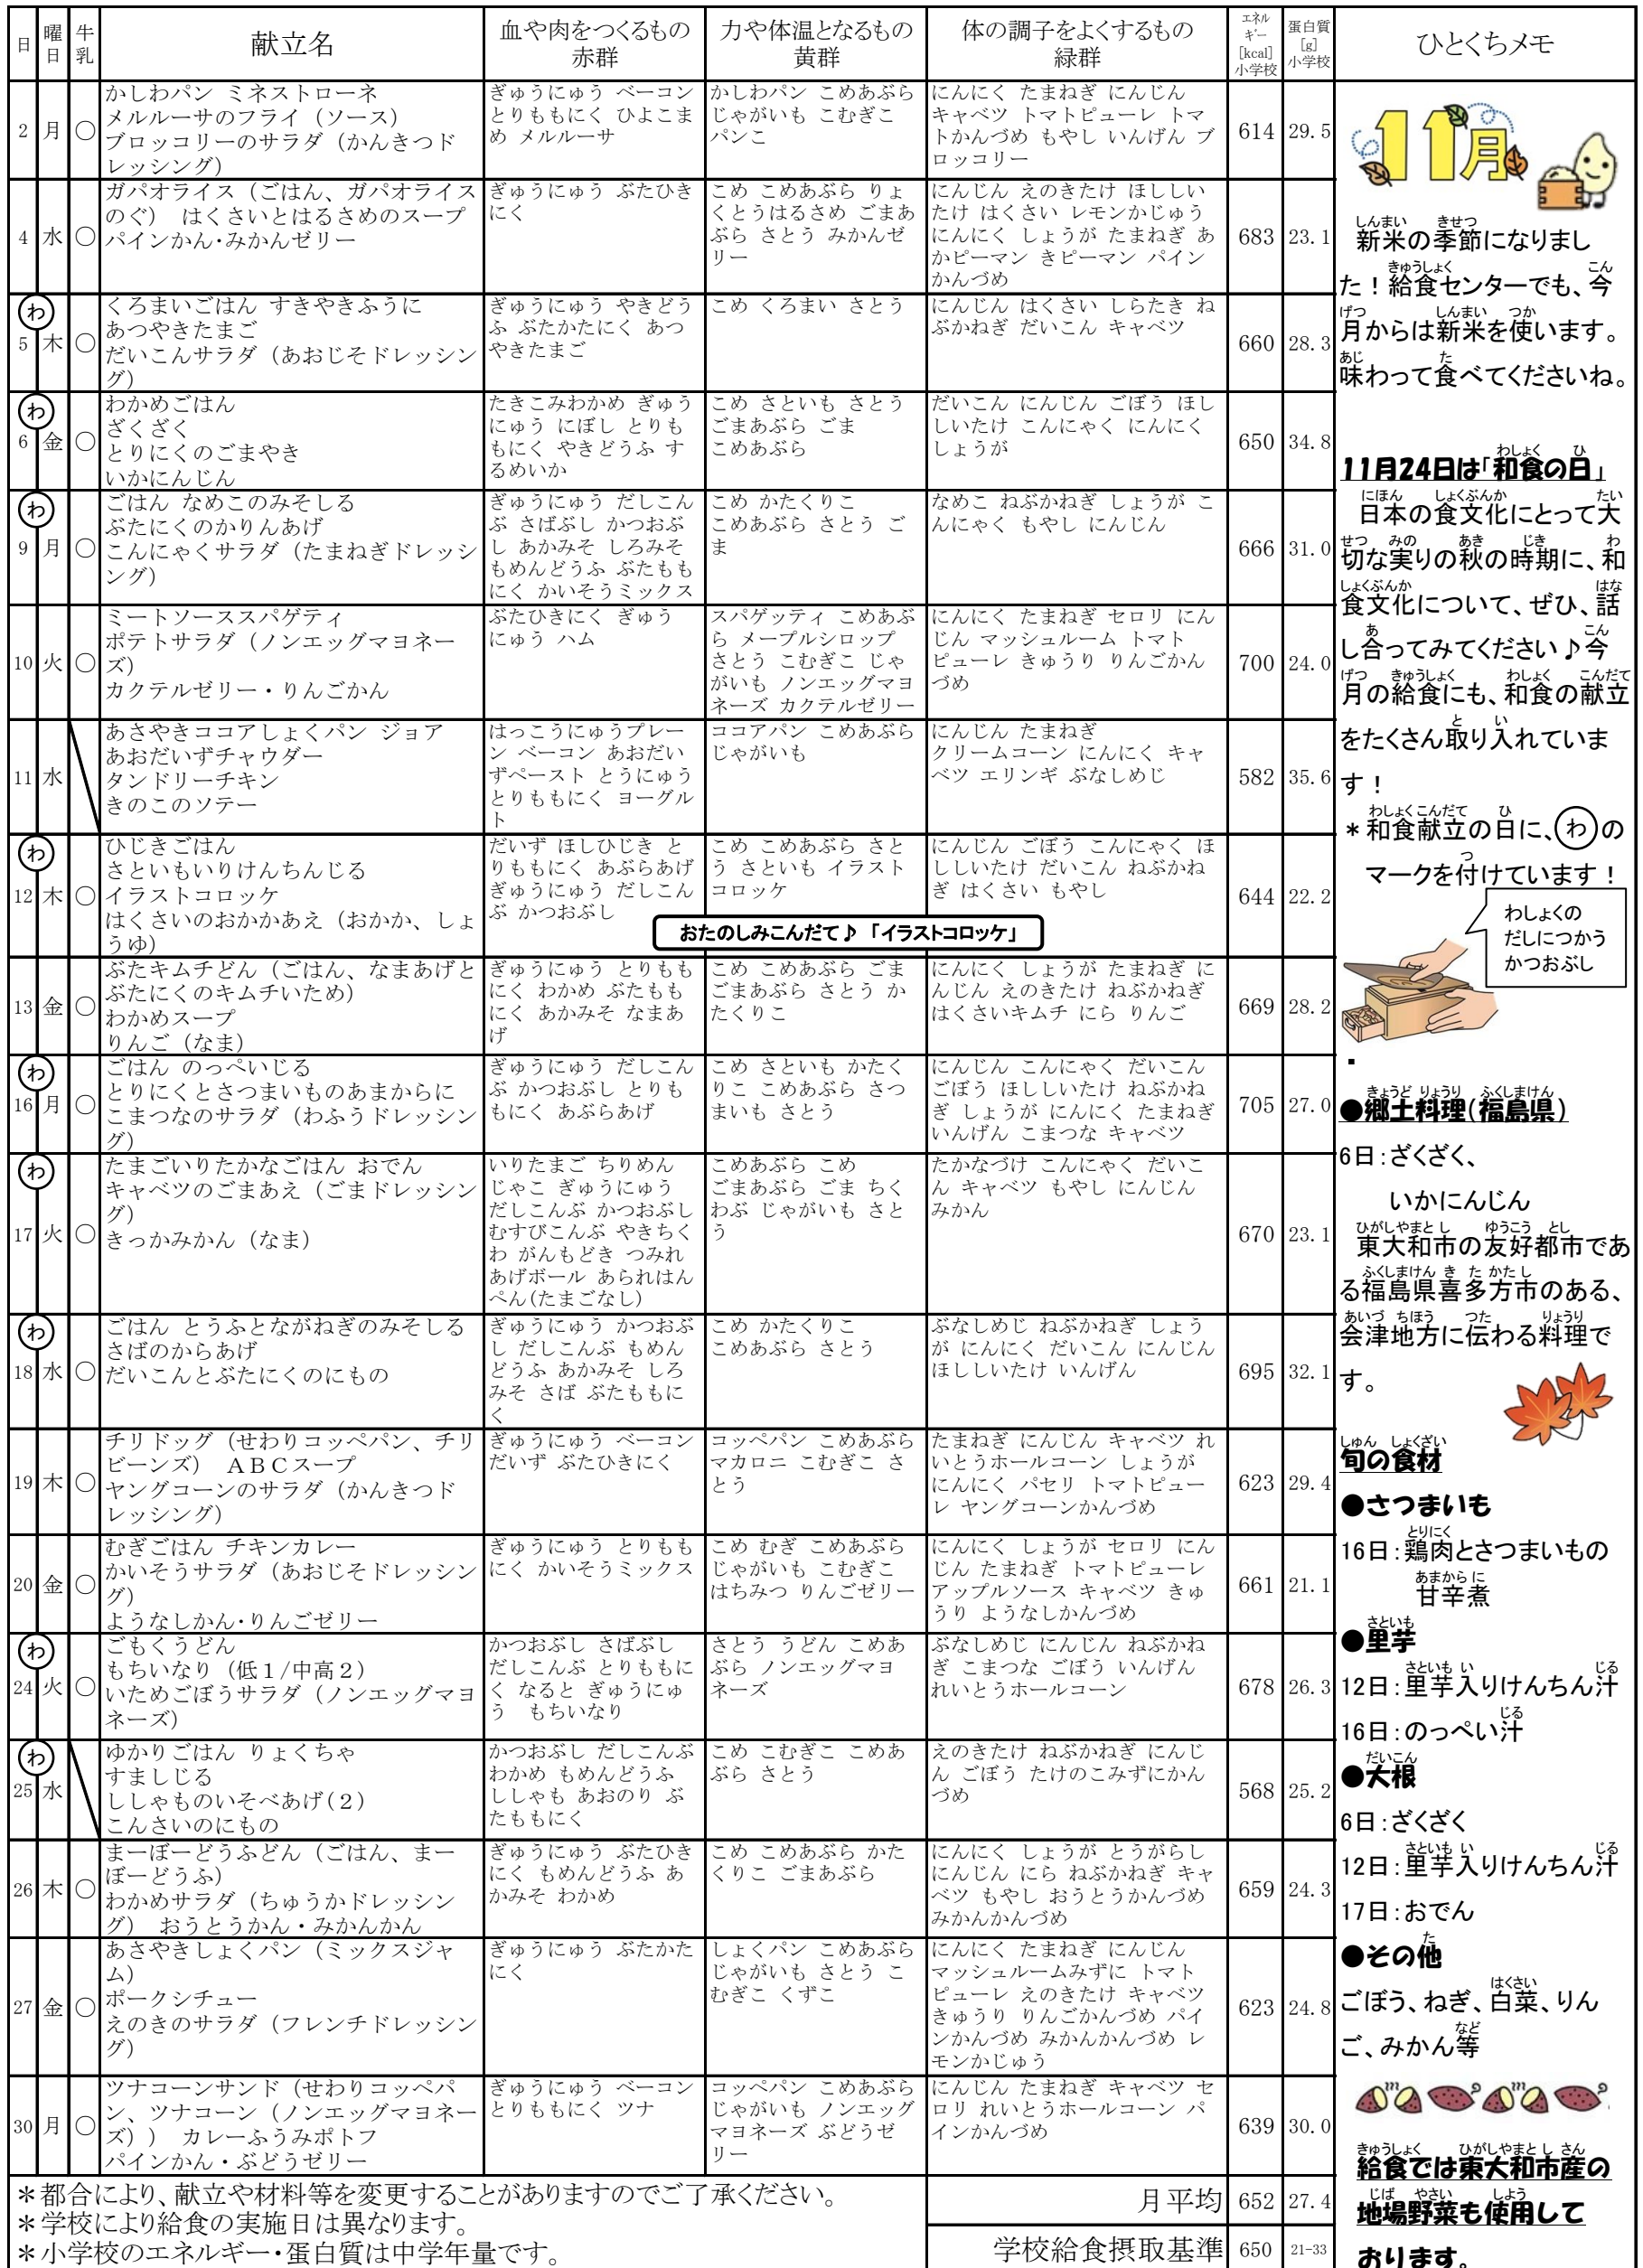 日 曜日 牛乳 献立名 血や肉をつくるもの 赤群 力や体温となるもの 黄群 体の調子をよくするもの 緑群 エネルギー [kcal] 小学校 蛋白質 [g] 小学校 ひとくちメモ
2 月 ○
かしわパン ミネストローネ
メルルーサのフライ（ソース）
ブロッコリーのサラダ（かんきつド
レッシング）
ぎゅうにゅう ベーコン
とりももにく ひよこま
め メルルーサ
かしわパン こめあぶら
じゃがいも こむぎこ
パンこ
にんにく たまねぎ にんじん
キャベツ トマトピューレ トマ
トかんづめ もやし いんげん ブ
ロッコリー
614 29.5
4 水 ○
ガパオライス（ごはん、ガパオライス
のぐ） はくさいとはるさめのスープ
パインかん・みかんゼリー
ぎゅうにゅう ぶたひき
にく
こめ こめあぶら りょ
くとうはるさめ ごまあ
ぶら さとう みかんゼ
リー
にんじん えのきたけ ほししい
たけ はくさい レモンかじゅう
にんにく しょうが たまねぎ あ
かピーマン きピーマン パイン
かんづめ
683 23.1
わ
5 木 ○
くろまいごはん すきやきふうに
あつやきたまご
だいこんサラダ（あおじそドレッシン
グ）
ぎゅうにゅう やきどう
ふ ぶたかたにく あつ
やきたまご
こめ くろまい さとう
にんじん はくさい しらたき ね
ぶかねぎ だいこん キャベツ
660 28.3
わ
6 金 ○
わかめごはん
ざくざく
とりにくのごまやき
いかにんじん
たきこみわかめ ぎゅう
にゅう にぼし とりも
もにく やきどうふ す
るめいか
こめ さといも さとう
ごまあぶら ごま
こめあぶら
だいこん にんじん ごぼう ほし
しいたけ こんにゃく にんにく
しょうが
650 34.8
わ
9 月 ○
ごはん なめこのみそしる
ぶたにくのかりんあげ
こんにゃくサラダ（たまねぎドレッシ
ング）
ぎゅうにゅう だしこん
ぶ さばぶし かつおぶ
し あかみそ しろみそ
もめんどうふ ぶたもも
にく かいそうミックス
こめ かたくりこ
こめあぶら さとう ご
ま
なめこ ねぶかねぎ しょうが こ
んにゃく もやし にんじん
666 31.0
10 火 ○
ミートソーススパゲティ
ポテトサラダ（ノンエッグマヨネー
ズ）
カクテルゼリー・りんごかん
ぶたひきにく ぎゅう
にゅう ハム
スパゲッティ こめあぶ
ら メープルシロップ
さとう こむぎこ じゃ
がいも ノンエッグマヨ
ネーズ カクテルゼリー
にんにく たまねぎ セロリ にん
じん マッシュルーム トマト
ピューレ きゅうり りんごかん
づめ
700 24.0
11 水
あさやきココアしょくパン ジョア
あおだいずチャウダー
タンドリーチキン
きのこのソテー
はっこうにゅうプレー
ン ベーコン あおだい
ずペースト とうにゅう
とりももにく ヨーグル
ト
ココアパン こめあぶら
じゃがいも
にんじん たまねぎ
クリームコーン にんにく キャ
ベツ エリンギ ぶなしめじ
582 35.6
わ
12 木 ○
ひじきごはん
さといもいりけんちんじる
イラストコロッケ
はくさいのおかかあえ（おかか、しょ
うゆ）
だいず ほしひじき と
りももにく あぶらあげ
ぎゅうにゅう だしこん
ぶ かつおぶし
こめ こめあぶら さと
う さといも イラスト
コロッケ
にんじん ごぼう こんにゃく ほ
ししいたけ だいこん ねぶかね
ぎ はくさい もやし
644 22.2
おたのしみこんだて♪「イラストコロッケ」
13 金 ○
ぶたキムチどん（ごはん、なまあげと
ぶたにくのキムチいため）
わかめスープ
りんご（なま）
ぎゅうにゅう とりもも
にく わかめ ぶたもも
にく あかみそ なまあ
げ
こめ こめあぶら ごま
ごまあぶら さとう か
たくりこ
にんにく しょうが たまねぎ に
んじん えのきたけ ねぶかねぎ
はくさいキムチ にら りんご
669 28.2
わ
16 月 ○
ごはん のっぺいじる
とりにくとさつまいものあまからに
こまつなのサラダ（わふうドレッシン
グ）
ぎゅうにゅう だしこん
ぶ かつおぶし とりも
もにく あぶらあげ
こめ さといも かたく
りこ こめあぶら さつ
まいも さとう
にんじん こんにゃく だいこん
ごぼう ほししいたけ ねぶかね
ぎ しょうが にんにく たまねぎ
いんげん こまつな キャベツ
705 27.0
わ
17 火 ○
たまごいりたかなごはん おでん
キャベツのごまあえ（ごまドレッシン
グ）
きっかみかん（なま）
いりたまご ちりめん
じゃこ ぎゅうにゅう
だしこんぶ かつおぶし
むすびこんぶ やきちく
わ がんもどき つみれ
あげボール あられはん
ぺん(たまごなし)
こめあぶら こめ
ごまあぶら ごま ちく
わぶ じゃがいも さと
う
たかなづけ こんにゃく だいこ
ん キャベツ もやし にんじん
みかん
670 23.1
わ
18 水 ○
ごはん とうふとながねぎのみそしる
さばのからあげ
だいこんとぶたにくのにもの
ぎゅうにゅう かつおぶ
し だしこんぶ もめん
どうふ あかみそ しろ
みそ さば ぶたももに
く
こめ かたくりこ
こめあぶら さとう
ぶなしめじ ねぶかねぎ しょう
が にんにく だいこん にんじん
ほししいたけ いんげん
695 32.1
19 木 ○
チリドッグ（せわりコッペパン、チリ
ビーンズ） ＡＢＣスープ
ヤングコーンのサラダ（かんきつド
レッシング）
ぎゅうにゅう ベーコン
だいず ぶたひきにく
コッペパン こめあぶら
マカロニ こむぎこ さ
とう
たまねぎ にんじん キャベツ れ
いとうホールコーン しょうが
にんにく パセリ トマトピュー
レ ヤングコーンかんづめ
623 29.4
20 金 ○
むぎごはん チキンカレー
かいそうサラダ（あおじそドレッシン
グ）
ようなしかん・りんごゼリー
ぎゅうにゅう とりもも
にく かいそうミックス
こめ むぎ こめあぶら
じゃがいも こむぎこ
はちみつ りんごゼリー
にんにく しょうが セロリ にん
じん たまねぎ トマトピューレ
アップルソース キャベツ きゅ
うり ようなしかんづめ
661 21.1
わ
24 火 ○
ごもくうどん
もちいなり（低１/中高２）
いためごぼうサラダ（ノンエッグマヨ
ネーズ）
かつおぶし さばぶし
だしこんぶ とりももに
く なると ぎゅうにゅ
う もちいなり
さとう うどん こめあ
ぶら ノンエッグマヨ
ネーズ
ぶなしめじ にんじん ねぶかね
ぎ こまつな ごぼう いんげん
れいとうホールコーン
678 26.3
わ
25 水
ゆかりごはん りょくちゃ
すましじる
ししゃものいそべあげ(２)
こんさいのにもの
かつおぶし だしこんぶ
わかめ もめんどうふ
ししゃも あおのり ぶ
たももにく
こめ こむぎこ こめあ
ぶら さとう
えのきたけ ねぶかねぎ にんじ
ん ごぼう たけのこみずにかん
づめ
568 25.2
26 木 ○
まーぼーどうふどん（ごはん、まー
ぼーどうふ）
わかめサラダ（ちゅうかドレッシン
グ） おうとうかん・みかんかん
ぎゅうにゅう ぶたひき
にく もめんどうふ あ
かみそ わかめ
こめ こめあぶら かた
くりこ ごまあぶら
にんにく しょうが とうがらし
にんじん にら ねぶかねぎ キャ
ベツ もやし おうとうかんづめ
みかんかんづめ
659 24.3
27 金 ○
あさやきしょくパン（ミックスジャ
ム）
ポークシチュー
えのきのサラダ（フレンチドレッシン
グ）
ぎゅうにゅう ぶたかた
にく
しょくパン こめあぶら
じゃがいも さとう こ
むぎこ くずこ
にんにく たまねぎ にんじん
マッシュルームみずに トマト
ピューレ えのきたけ キャベツ
きゅうり りんごかんづめ パイ
ンかんづめ みかんかんづめ レ
モンかじゅう
623 24.8
30 月 ○
ツナコーンサンド（せわりコッペパ
ン、ツナコーン（ノンエッグマヨネー
ズ）） カレーふうみポトフ
パインかん・ぶどうゼリー
ぎゅうにゅう ベーコン
とりももにく ツナ
コッペパン こめあぶら
じゃがいも ノンエッグ
マヨネーズ ぶどうゼ
リー
にんじん たまねぎ キャベツ セ
ロリ れいとうホールコーン パ
インかんづめ
639 30.0
＊都合により、献立や材料等を変更することがありますのでご了承ください。
＊学校により給食の実施日は異なります。
＊小学校のエネルギー・蛋白質は中学年量です。
月平均 652 27.4
学校給食摂取基準 650 21-33
11月
しんまい きせつ
新米の季節になりまし
きゅうしょく こん
た！給食センターでも、今
げつ しんまい つか
月からは新米を使います。
あじ た
味わって食べてくださいね。
わしょく ひ
11月24日は「和食の日」
にほん しょくぶんか たい
日本の食文化にとって大
せつ みの あき じき わ
切な実りの秋の時期に、和
しょくぶんか はな
食文化について、ぜひ、話
あ こん
し合ってみてください♪今
げつ きゅうしょく わしょく こんだて
月の給食にも、和食の献立
と い
をたくさん取り入れていま
す！
わしょくこんだて ひ
＊和食献立の日に、わの
つ
マークを付けています！
わしょくの
だしにつかう
かつおぶし
きょうど りょうり ふくしまけん
●郷土料理(福島県)
6日：ざくざく、
いかにんじん
ひがしやまとし ゆうこう とし
東大和市の友好都市であ
ふくしまけん きたかたし
る福島県喜多方市のある、
あいづ ちほう つた りょうり
会津地方に伝わる料理で
す。
しゅん しょくざい
旬の食材
●さつまいも
とりにく
16日：鶏肉とさつまいもの
あまからに
甘辛煮
さといも
●里芋
さといも い じる
12日：里芋入りけんちん汁
じる
16日：のっぺい汁
だいこん
●大根
6日：ざくざく
さといも い じる
12日：里芋入りけんちん汁
17日：おでん
た
●その他
はくさい
ごぼう、ねぎ、白菜、りん
など
ご、みかん等
きゅうしょく ひがしやまとし さん
給食では東大和市産の
じば やさい しよう
地場野菜も使用して
おります。